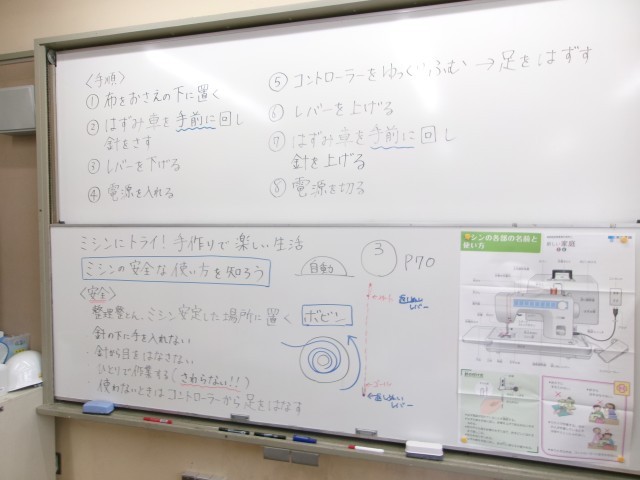 〈手順〉
① 布をおさえの下に置く
② はずみ車を手前に回し
針をさす
③ レバーを下げる
④ 電源を入れる
⑤ コントローラーをゆっくりふむ → 足をはずす
⑥ レバーを上げる
⑦ はずみ車を手前に回し
針を上げる
⑧ 電源を切る
ミシンにトライ！手作りで楽しい生活
ミシンの安全な使い方を知ろう
〈安全〉
整理整とん、ミシン安定した場所に置く
・針の下に手を入れない
・針から目をはなさない
・ひとりで作業する（さわらない!!）
・使わないときはコントローラーから足をはなす
自動
③ P70
ボビン
スタート
返しぬい
レバー
ゴール
返しぬい
レバー
ミシンの各部の名前と
使い方
新しい家庭